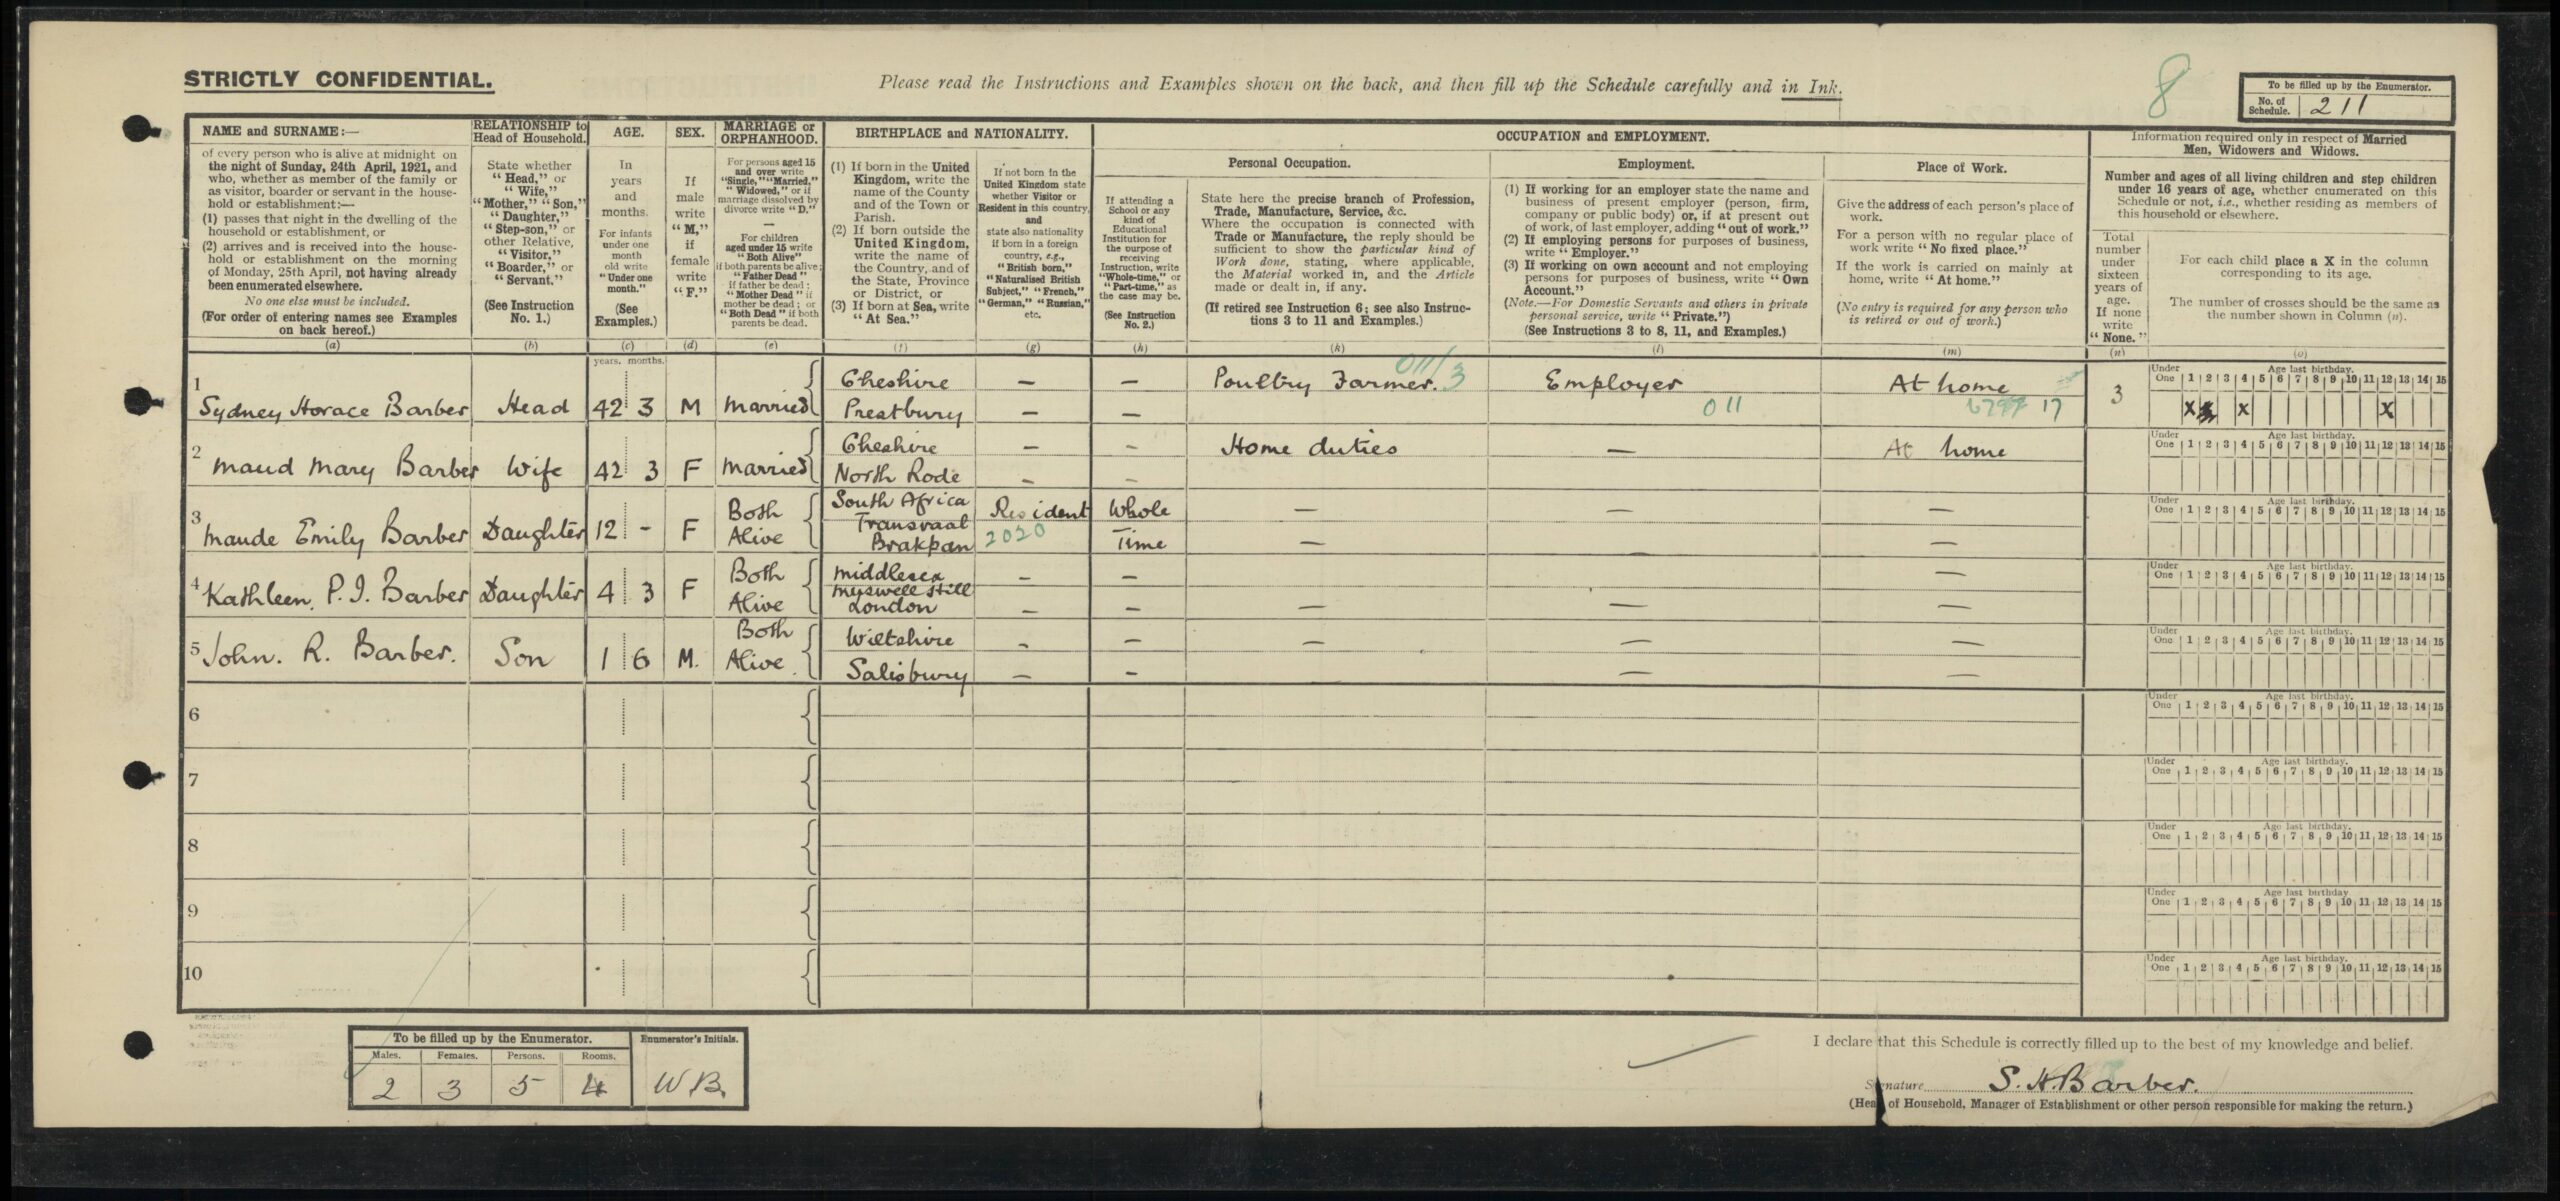 STRICTLY CONFIDENTIAL.
Please read the Instructions and Examples shown on the back, and then fill up the Schedule carefully and in Ink.
8
To be filled up by the Enumerator.
No. of Schedule. 211
NAME and SURNAME:—
of every person who is alive at midnight on
the night of Sunday, 24th April, 1921, and
who, whether as member of the family or
as visitor, boarder or servant in the house-
hold or establishment:—
(1) passes that night in the dwelling of the
household or establishment, or
(2) arrives and is received into the house-
hold or establishment on the morning
of Monday, 25th April, not having already
been enumerated elsewhere.
No one else must be included.
(For order of entering names see Examples
on back hereof.)
(a)
RELATIONSHIP to
Head of Household.
State whether
"Head," or
"Wife,"
"Mother," "Son,"
"Daughter,"
"Step-son," or
other Relative,
"Visitor,"
"Boarder," or
"Servant."
(See Instruction
No. 1.)
(b)
AGE.
In
years
and
months.
For infants
under one
month
old write
"Under one
month."
(See
Examples.)
(c)
years. months.
SEX.
If
male
write
"M,"
if
female
write
"F."
(d)
MARRIAGE or
ORPHANHOOD.
For persons aged 15
and over write
"Single," "Married,"
"Widowed," or if
marriage dissolved by
divorce write "D."
—
For children
aged under 15 write
"Both Alive"
if both parents be alive;
"Father Dead"
if father be dead;
"Mother Dead" if
mother be dead; or
"Both Dead" if both
parents be dead.
(e)
BIRTHPLACE and NATIONALITY.
(1) If born in the United
Kingdom, write the
name of the County
and of the Town or
Parish.
(2) If born outside the
United Kingdom,
write the name of
the Country, and of
the State, Province
or District, or
(3) If born at Sea, write
"At Sea."
(f)
If not born in the
United Kingdom state
whether Visitor or
Resident in this country,
and
state also nationality
if born in a foreign
country, e.g.,
"British born,"
"Naturalised British
Subject," "French,"
"German," "Russian,"
etc.
(g)
OCCUPATION and EMPLOYMENT.
If attending a
School or any
kind of
Educational
Institution for
the purpose of
receiving
Instruction, write
"Whole-time," or
"Part-time," as
the case may be.
(See Instruction
No. 2.)
(h)
Personal Occupation.
State here the precise branch of Profession,
Trade, Manufacture, Service, &c.
Where the occupation is connected with
Trade or Manufacture, the reply should be
sufficient to show the particular kind of
Work done, stating, where applicable,
the Material worked in, and the Article
made or dealt in, if any.
(If retired see Instruction 6; see also Instruc-
tions 3 to 11 and Examples.)
(k)
Employment.
(1) If working for an employer state the name and
business of present employer (person, firm,
company or public body) or, if at present out
of work, of last employer, adding "out of work."
(2) If employing persons for purposes of business,
write "Employer."
(3) If working on own account and not employing
persons for purposes of business, write "Own
Account."
(Note.—For Domestic Servants and others in private
personal service, write "Private.")
(See Instructions 3 to 8, 11, and Examples.)
(l)
Place of Work.
Give the address of each person's place of
work.
For a person with no regular place of
work write "No fixed place."
If the work is carried on mainly at
home, write "At home."
(No entry is required for any person who
is retired or out of work.)
(m)
Information required only in respect of Married
Men, Widowers and Widows.
Number and ages of all living children and step children
under 16 years of age, whether enumerated on this
Schedule or not, i.e., whether residing as members of
this household or elsewhere.
Total
number
under
sixteen
years of
age.
If none
write
"None."
(n)
For each child place a X in the column
corresponding to its age.
The number of crosses should be the same as
the number shown in Column (n).
(o)
1 Sydney Horace Barber Head 42 3 M Married Cheshire Prestbury — — — — Poultry Farmer. 011/3 Employer 011 At home 17 3
Under One Age last birthday. 1 2 3 4 5 6 7 8 9 10 11 12 13 14 15
X X X
2 Maud Mary Barber Wife 42 3 F Married Cheshire North Rode — — — — Home duties — At home
Under One Age last birthday. 1 2 3 4 5 6 7 8 9 10 11 12 13 14 15
3 Maude Emily Barber Daughter 12 - F Both Alive South Africa Transvaal Brakpan Resident 2020 Whole Time — — — — — —
Under One Age last birthday. 1 2 3 4 5 6 7 8 9 10 11 12 13 14 15
4 Kathleen. P. I. Barber Daughter 4 3 F Both Alive Middlesex Muswell Hill London — — — — — — — —
Under One Age last birthday. 1 2 3 4 5 6 7 8 9 10 11 12 13 14 15
5 John. R. Barber. Son 1 6 M. Both Alive Wiltshire Salisbury — — — — — — — — —
Under One Age last birthday. 1 2 3 4 5 6 7 8 9 10 11 12 13 14 15
6
Under One Age last birthday. 1 2 3 4 5 6 7 8 9 10 11 12 13 14 15
7
Under One Age last birthday. 1 2 3 4 5 6 7 8 9 10 11 12 13 14 15
8
Under One Age last birthday. 1 2 3 4 5 6 7 8 9 10 11 12 13 14 15
9
Under One Age last birthday. 1 2 3 4 5 6 7 8 9 10 11 12 13 14 15
10
Under One Age last birthday. 1 2 3 4 5 6 7 8 9 10 11 12 13 14 15
To be filled up by the Enumerator. Enumerator's Initials.
Males. Females. Persons. Rooms.
2 3 5 4 W B.
I declare that this Schedule is correctly filled up to the best of my knowledge and belief.
Signature S. H. Barber.
(Head of Household, Manager of Establishment or other person responsible for making the return.)